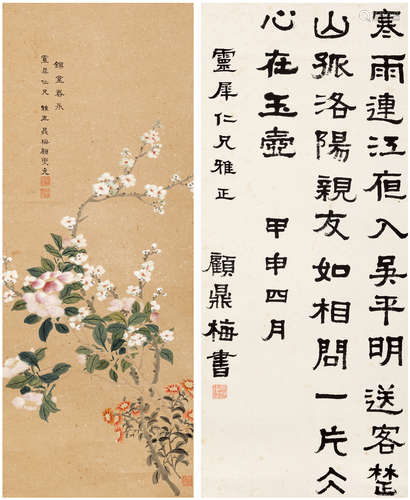 錦堂春永
靈犀仁兄雅正
寒雨連江夜入吳平明送客楚
山孤洛陽親友如相問一片冰
心在玉壺 甲申四月
靈犀仁兄雅正
顧鼎梅書